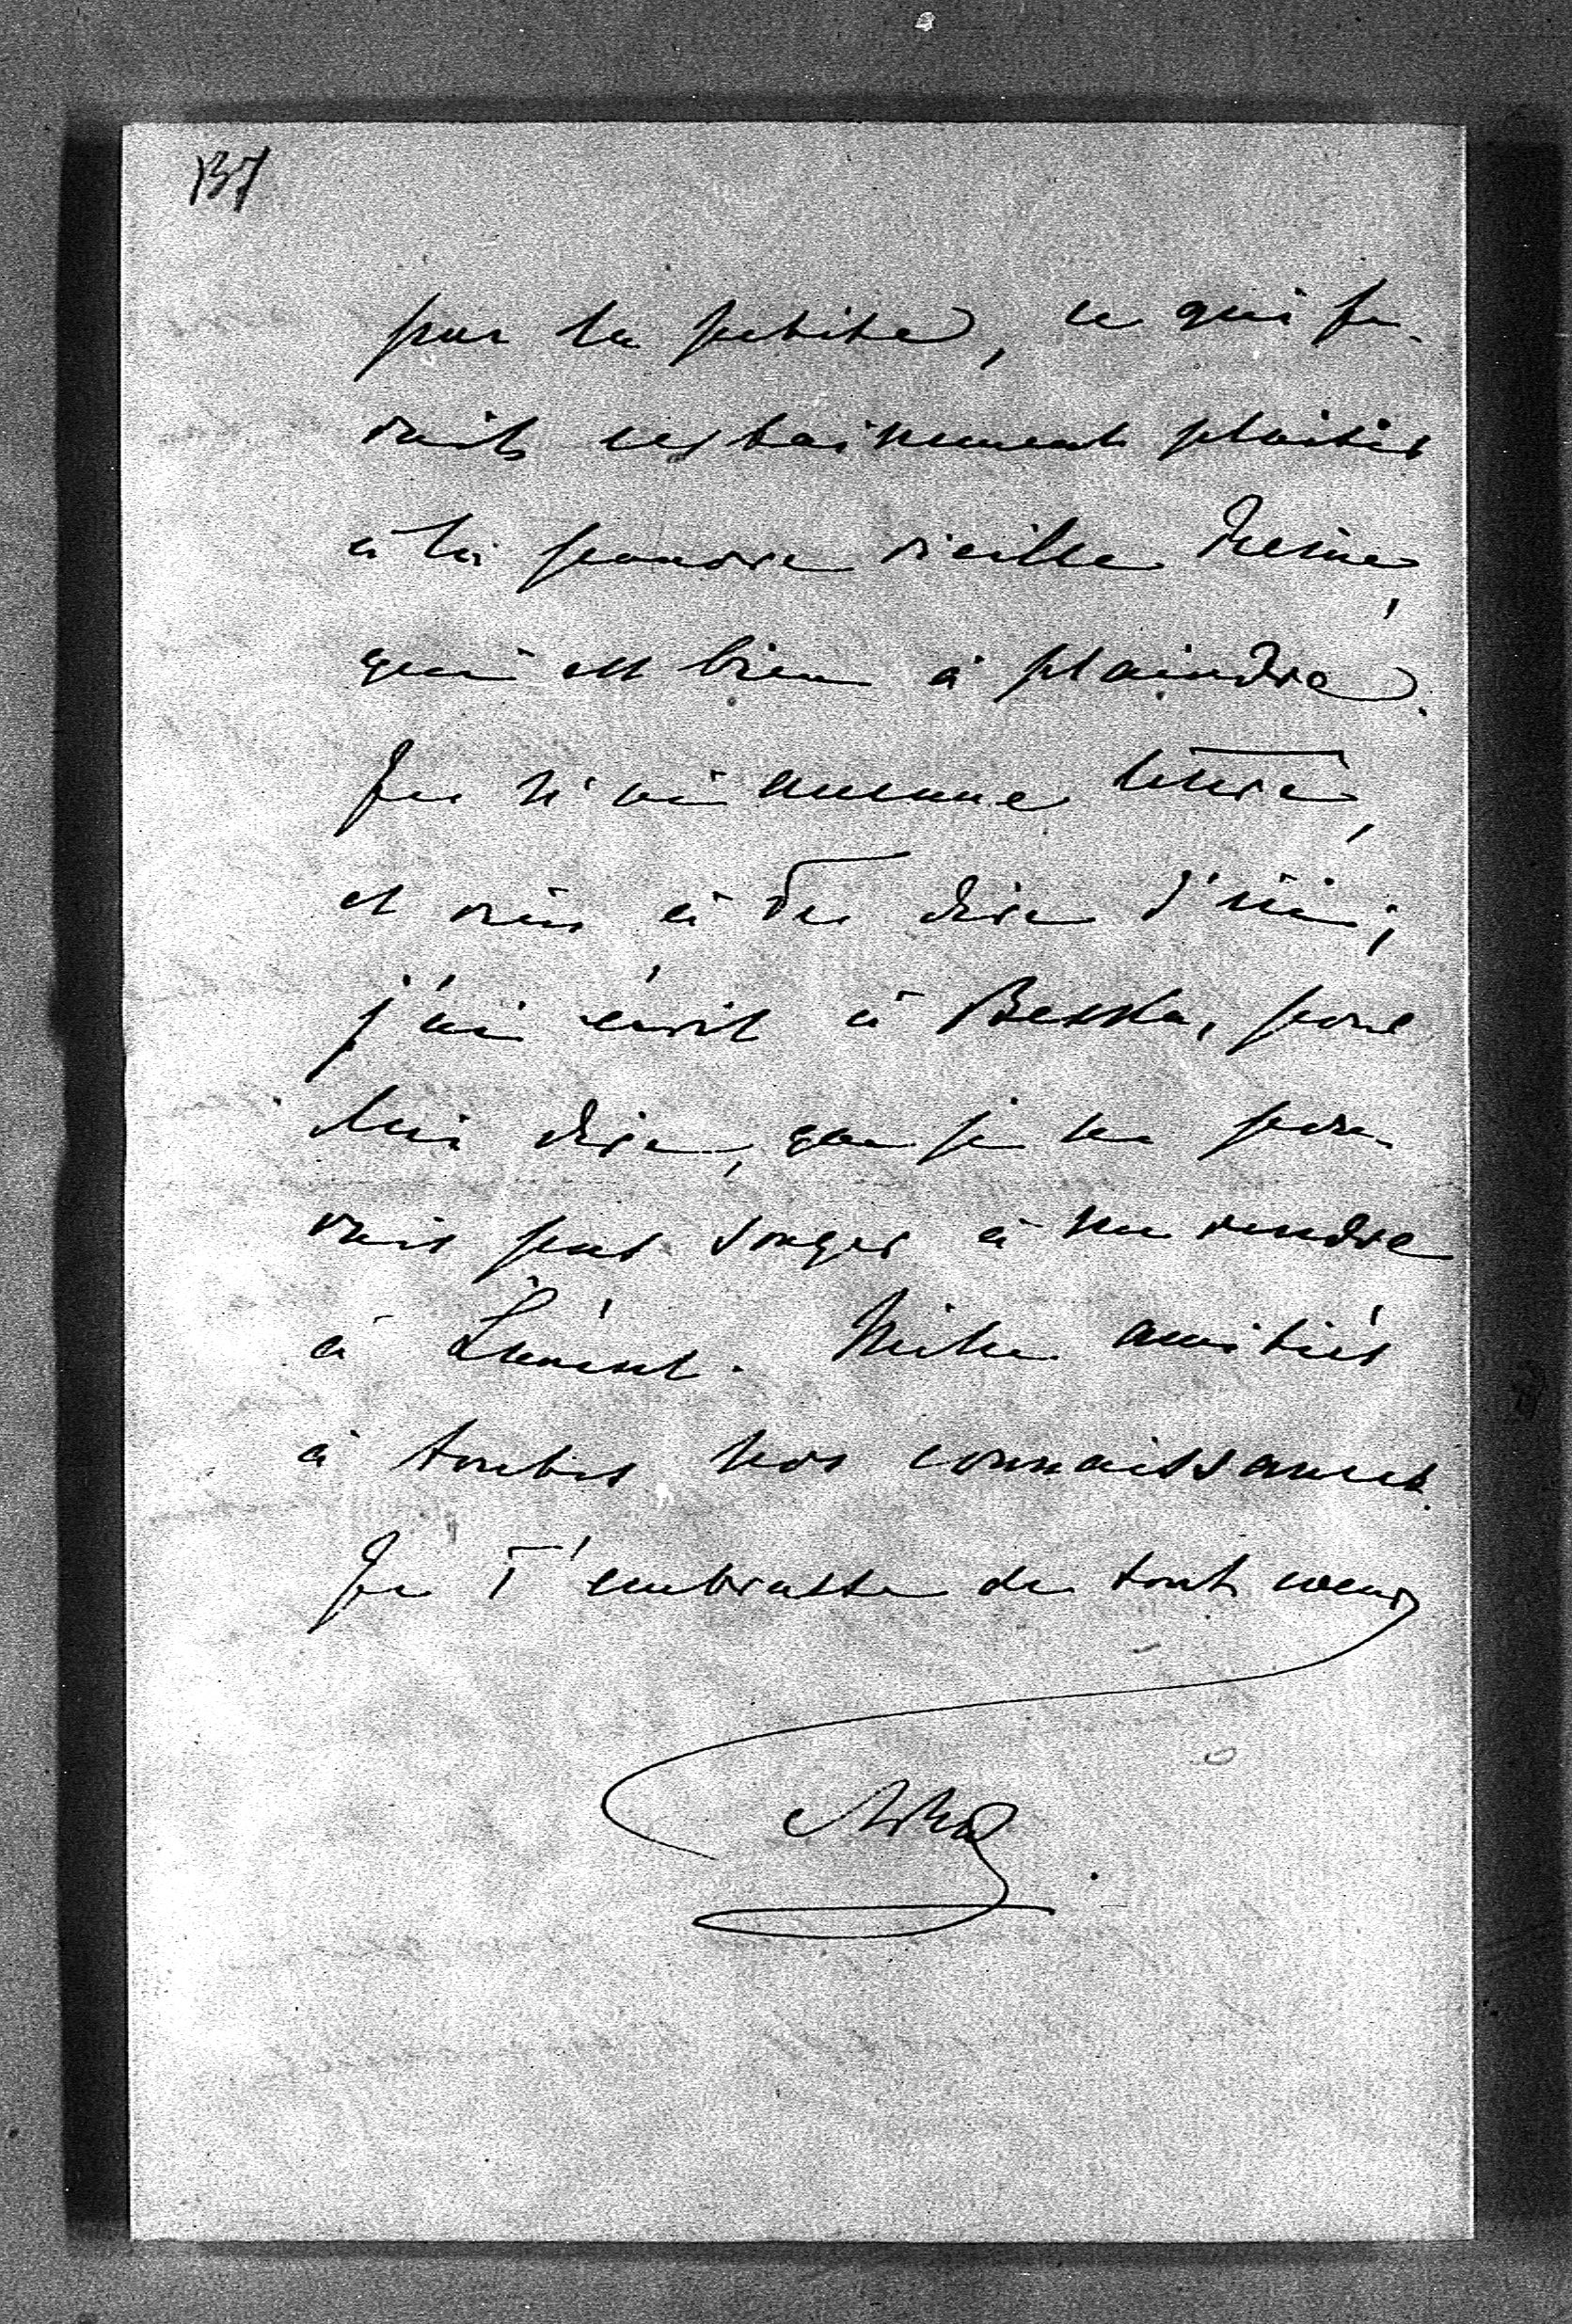 137
par la petite, ce qui fe-
rait certainement plaisir
à la pauvre vieille Reine,
qui est bien à plaindre.
Je n'ai aucune lettre,
et rien à Te dire d'ici;
j'ai écrit à Bekka, pour
lui dire, que je ne pou-
vais pas songer à me rendre
à Mille amitiés
à toutes nos connaissances.
Je T'embrasse de tout coeur